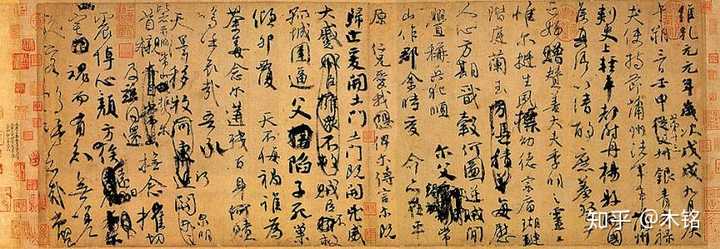 維乾元元年歲次戊戌九月庚
午朔三日壬申從父銀青光祿
夫使持節蒲州諸軍事蒲州
刺史上輕車都尉丹楊縣開
國侯真卿以清酌庶羞祭于
亡姪贈贊善大夫季明之靈曰
惟爾挺生夙標幼德宗廟瑚璉
階庭蘭玉每慰
人心方期戩穀何圖逆賊閒
釁稱兵犯順爾父竭誠常
山作郡余時受命亦在平
原仁兄愛我俾爾傳言爾既
歸止爰開土門土門既開凶威
大蹙賊臣不救
孤城圍逼父陷子死巢
傾卵覆天不悔禍誰為
荼毒念爾遘殘百身何贖
嗚呼哀哉吾承
天澤移牧河關泉明
首櫬及茲同還撫念摧切
震悼心顏方俟遠日
幽宅魂而有知無嗟
久客嗚呼哀哉尚饗
知乎 @木铭